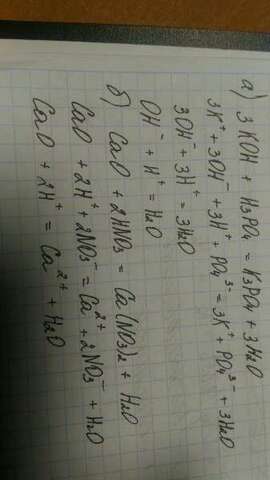 а) 3KOH + H3PO4 = K3PO4 + 3H2O
3K⁺ + 3OH⁻ + 3H⁺ + PO4³⁻ = 3K⁺ + PO4³⁻ + 3H2O
3OH⁻ + 3H⁺ = 3H2O
OH⁻ + H⁺ = H2O
б) CaO + 2HNO3 = Ca(NO3)2 + H2O
CaO + 2H⁺ + 2NO3⁻ = Ca²⁺ + 2NO3⁻ + H2O
CaO + 2H⁺ = Ca²⁺ + H2O